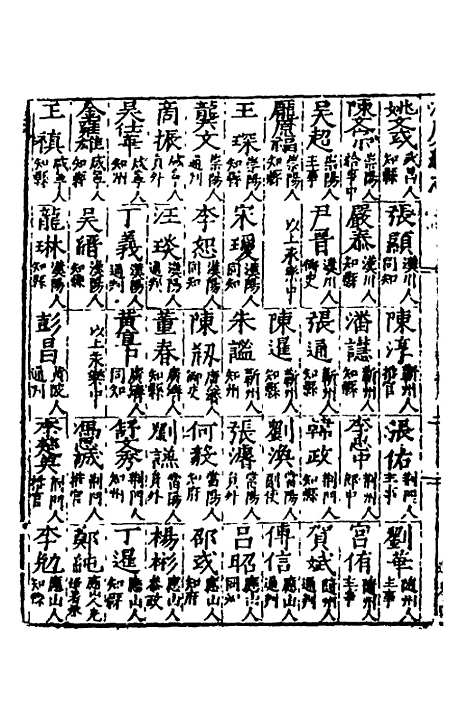 姚彧武昌人知縣 張顯漢川人同知 陳淳蘄州人推官 張佑荆門人主事 劉華隨州人主事
陳 崇陽人給事中 嚴泰漢川人知縣 潘諶蘄州人知縣 李 荆州人郎中 宫侑隨州人主事
吳超崇陽人主事 尹晋漢川人御史 張通蘄州人知縣 韓政荆州人知縣 賀斌隨州人通判
龐福崇陽人知縣 以上永樂中 陳暹蘄州人知縣 劉渙當陽人副使 傅信應山人通判
王琛崇陽人知縣 宋瑷漢陽人同知 朱謐蘄州人知州 張濬當陽人員外 吕昭應山人同知
龔文崇陽人通判 李恕漢陽人同知 陳 廣濟人御史 何毅當陽人員外 邵彧應山人知府
商振咸寧人員外 汪琰漢陽人通判 董春廣濟人知縣 劉謙當陽人員外 楊彬應山人參政
吳 咸寧人知州 丁義漢陽人通判 黄中廣濟人同知 舒 荆門人知州 丁暹應山人知縣
金羅咸寧人知縣 吳縉漢陽人知縣 以上永樂中 馮誠荆門人推官 鄭 應山人
王禛咸寧人知縣 龍琳漢陽人知縣 彭昌 人通判 秦 荆門人推官 李勉應山人知縣